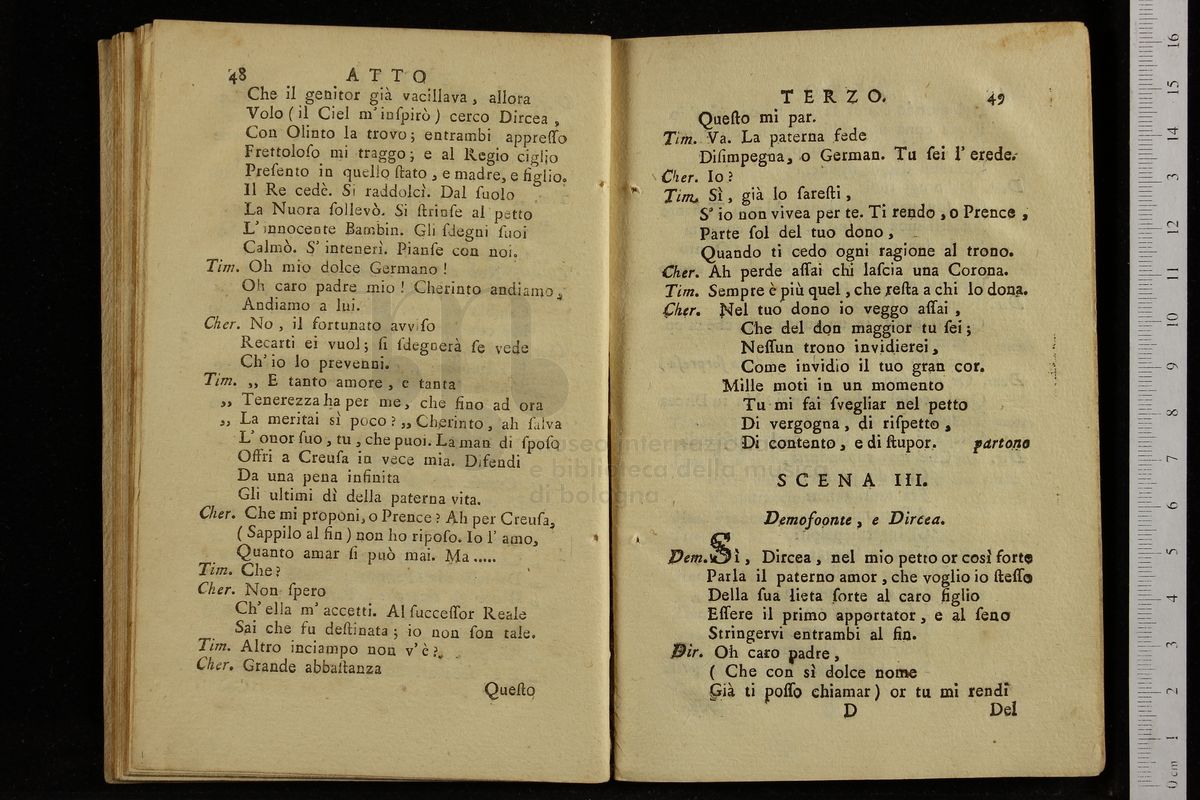 48 ATTO
Che il genitor già vacillava, allora
Volo (il Ciel m'inſpirò) cerco Dircea,
Con Olinto la trovo; entrambi appreſſo
Frettoloſo mi traggo; e al Regio ciglio
Preſento in quello ſtato, e madre, e figlio.
Il Re cedè. Si raddolcì. Dal ſuolo
La Nuora ſollevò. Si ſtrinſe al petto
L'innocente Bambin. Gli ſdegni ſuoi
Calmò. S'intenerì. Pianſe con noi.
Tim. Oh mio dolce Germano!
Oh caro padre mio! Cherinto andiamo,
Andiamo a lui.
Cher. No, il fortunato avviſo
Recarti ei vuol; ſi ſdegnerà ſe vede
Ch'io lo prevenni.
Tim. ,, E tanto amore, e tanta
,, Tenerezza ha per me, che fino ad ora
,, La meritai sì poco? ,, Cherinto, ah ſalva
L'onor ſuo, tu, che puoi. La man di ſpoſo
Offri a Creuſa in vece mia. Difendi
Da una pena infinita
Gli ultimi dì della paterna vita.
Cher. Che mi proponi, o Prence? Ah per Creuſa,
(Sappilo al fin) non ho ripoſo. Io l'amo,
Quanto amar ſi può mai. Ma.....
Tim. Che?
Cher. Non ſpero
Ch'ella m'accetti. Al ſucceſſor Reale
Sai che fu deſtinata; io non ſon tale.
Tim. Altro inciampo non v'è?
Cher. Grande abbaſtanza
Queſto
TERZO. 49
Queſto mi par.
Tim. Va. La paterna fede
Diſimpegna, o German. Tu ſei l'erede.
Cher. Io?
Tim. Sì, già lo fareſti,
S'io non vivea per te. Ti rendo, o Prence,
Parte ſol del tuo dono,
Quando ti cedo ogni ragione al trono.
Cher. Ah perde aſſai chi laſcia una Corona.
Tim. Sempre è più quel, che reſta a chi lo dona.
Cher. Nel tuo dono io veggo aſſai,
Che del don maggior tu ſei;
Neſſun trono invidierei,
Come invidio il tuo gran cor.
Mille moti in un momento
Tu mi fai ſvegliar nel petto
Di vergogna, di riſpetto,
Di contento, e di ſtupor. partono
SCENA III.
Demofoonte, e Dircea.
Dem. Sì, Dircea, nel mio petto or così forte
Parla il paterno amor, che voglio io ſteſſo
Della ſua lieta ſorte al caro figlio
Eſſere il primo apportator, e al ſeno
Stringervi entrambi al fin.
Dir. Oh caro padre,
(Che con sì dolce nome
Già ti poſſo chiamar) or tu mi rendi
D Del
museo internazionale
e biblioteca della musica
di bologna
0 cm 1 2 3 4 5 6 7 8 9 10 11 12 13 14 15 16